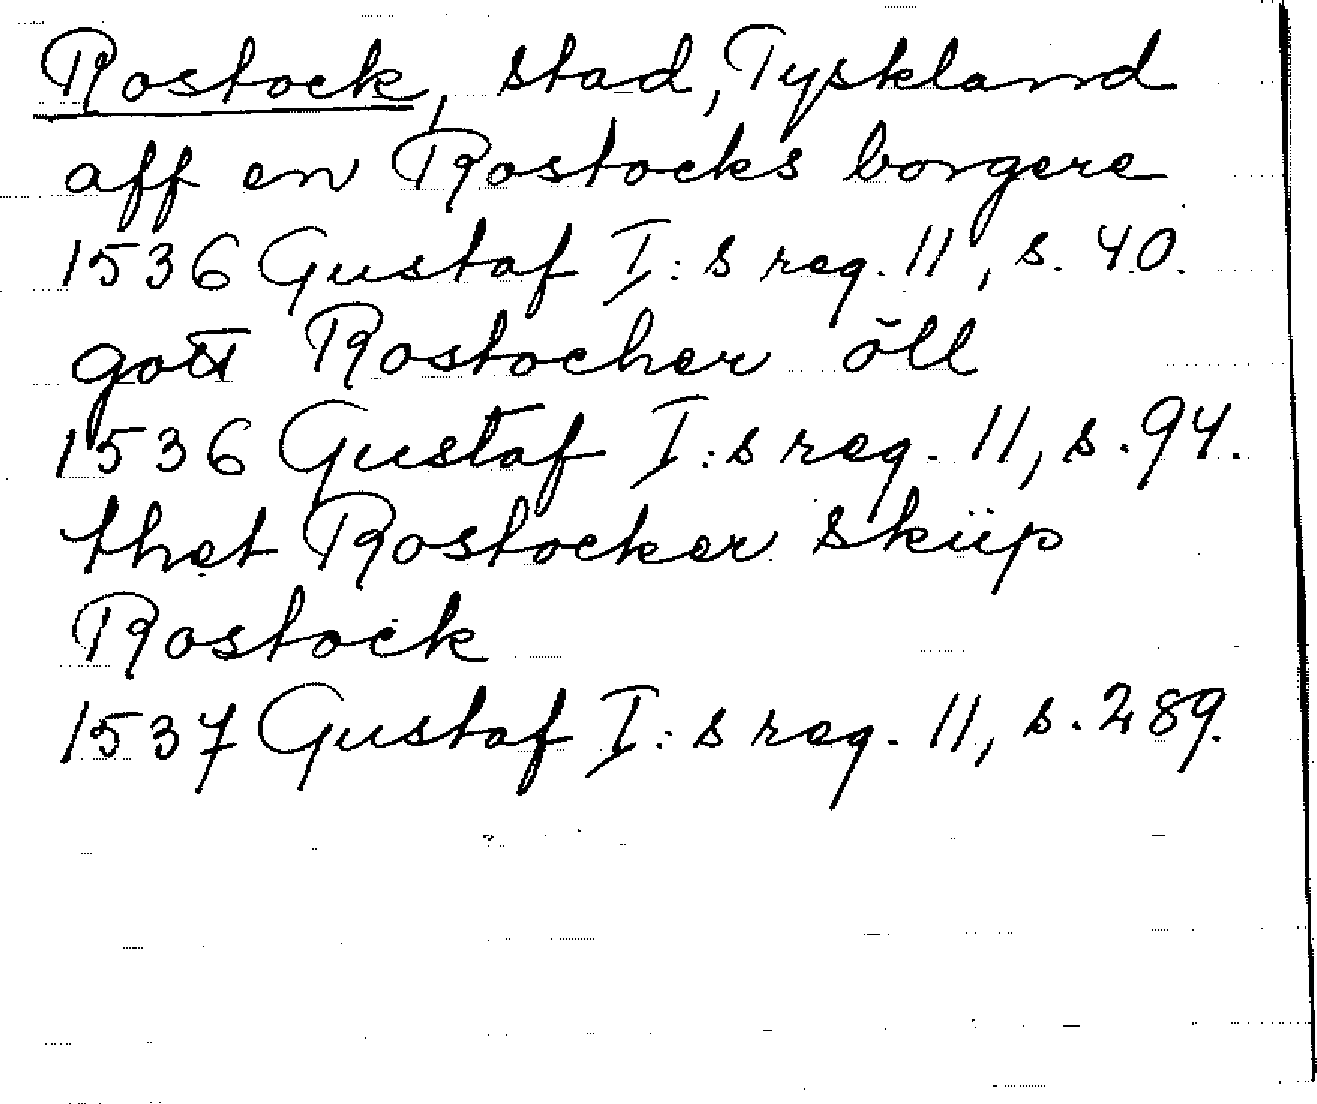 Rostock, stad, Tyskland
aff en Rostocks borgere
1536 Gustaf I:s reg. 11, s. 40.
gott Rostocher öll
1536 Gustaf I:s reg. 11, s. 94.
thet Rostocker sküp
Rostock
1537 Gustaf I:s reg. 11, s. 289.